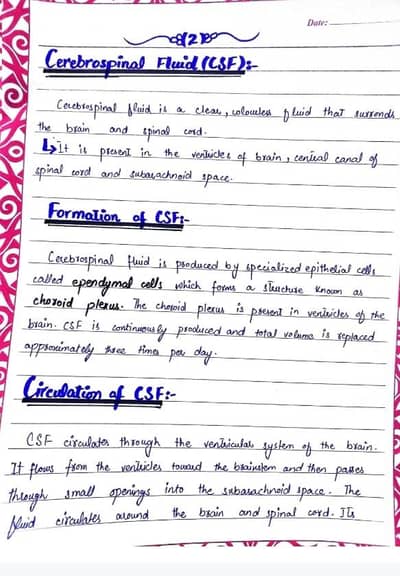 Date:
(2)
Cerebrospinal Fluid (CSF):-
Cerebrospinal fluid is a clear, colourless fluid that surronds
the brain and spinal cord.
↳It is present in the ventricles of brain, central canal of
spinal cord and subarachnoid space.
Formation of CSF:-
Cerebrospinal fluid is produced by specialized epithelial cells
called ependymal cells which forms a structure known as
choroid plexus. The choroid plexus is present in ventricles of the
brain. CSF is continuously produced and total volume is replaced
approximately three times per day.
Circulation of CSF:-
CSF circulates through the ventricular system of the brain.
It flows from the ventricles toward the brainstem and then passes
through small openings into the subarachnoid space. The
fluid circulates around the brain and spinal cord. Its